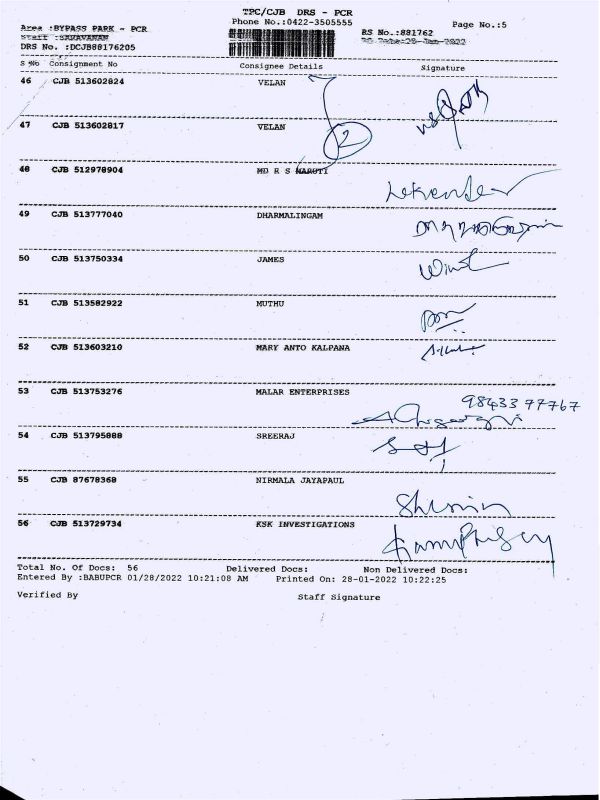 TPC/CJB DRS - PCR
Phone No.:0422-3505555
Page No.:5
Area :BYPASS PARK - PCR
Staff :SARAVANAN
DRS No. :DCJB88176205
RS No.:881762
RS Date:28-Jan-2022
S No Consignment No Consignee Details Signature
46 CJB 513602824 VELAN
47 CJB 513602817 VELAN
2
48 CJB 512978904 MD R S MARUTI
49 CJB 513777040 DHARMALINGAM
50 CJB 513750334 JAMES
51 CJB 513582922 MUTHU
52 CJB 513603210 MARY ANTO KALPANA
53 CJB 513753276 MALAR ENTERPRISES
98433 77767
54 CJB 513795888 SREERAJ
55 CJB 87678368 NIRMALA JAYAPAUL
56 CJB 513729734 KSK INVESTIGATIONS
Total No. Of Docs: 56 Delivered Docs: Non Delivered Docs:
Entered By :BABUPCR 01/28/2022 10:21:08 AM Printed On: 28-01-2022 10:22:25
Verified By Staff Signature